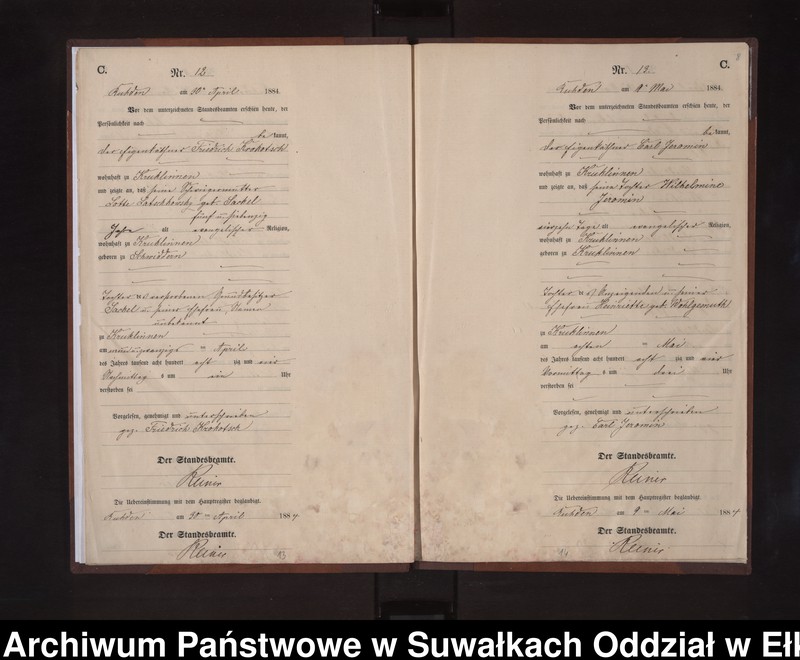 C.
Nr. 12.
am 30ten April 1884.
Vor dem unterzeichneten Standesbeamten erschien heute, der
Persönlichkeit nach
be kannt,
der Eigenkäthner Friedrich Krokotsch
wohnhaft zu Krucklinnen
und zeigte an, daß seine Schwiegermutter
Lotte geb. Sackel
fünf u. siebenzig
Jahre alt evangelischer Religion,
wohnhaft zu Krucklinnen
geboren zu Schwiddern
Tochter des verstorbenen Grundbesitzer
Sackel u. seiner Ehefrau, Namen
unbekannt
zu Krucklinnen
am neun u. zwanzigst ten April
des Jahres tausend acht hundert acht zig und vier
Nachmittag s um ein Uhr
verstorben sei
Vorgelesen, genehmigt und unterschrieben
gez. Friedrich Krokotsch
Der Standesbeamte.
Die Uebereinstimmung mit dem Hauptregister beglaubigt.
am 30 ten April 1884
Der Standesbeamte.
13
Nr. C.
am 9t Mai 1884.
Vor dem unterzeichneten Standesbeamten erschien heute, der
Persönlichkeit nach
be kannt,
der Eigenkäthner Carl Jeromin
wohnhaft zu Krucklinnen
und zeigte an, daß seine Tochter Wilhelmine
Jeromin
vierzehn Tage alt evangelischer Religion,
wohnhaft zu Krucklinnen
geboren zu Krucklinnen
Tochter des Anzeigenden u. seiner
Ehefrau Henriette geb. Wohlgemuth
zu Krucklinnen
am achten ten Mai
des Jahres tausend acht hundert acht zig und vier
Vormittag s um drei Uhr
verstorben sei
Vorgelesen, genehmigt und unterschrieben
gez. Carl Jeromin
Der Standesbeamte.
Die Uebereinstimmung mit dem Hauptregister beglaubigt.
am 9 ten Mai 1884
Der Standesbeamte.
14
Archiwum Państwowe w Suwałkach Oddział w Ełk